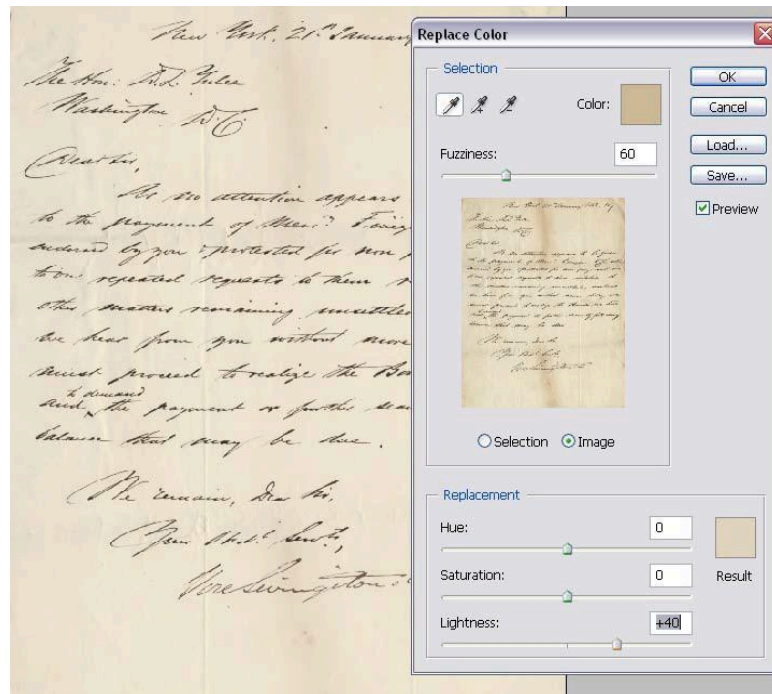 New York. 21st January
The Hon: D. L. Yulee
Washington
D.C.
Dear Sir,
As no attention appears
to the payment of Mess.
endorsed by you & protested for non
to our repeated requests to them
other matters remaining unsettled
we hear from you without more
must proceed to realize the
to demand
and the payment or further
balance that may be due.
We remain, Dear Sir,
Your Obdt Servts,
Replace Color
Selection
Color:
Fuzziness:
60
Selection
Image
Replacement
Hue:
0
Saturation:
0
Result
Lightness:
+40
OK
Cancel
Load...
Save...
Preview